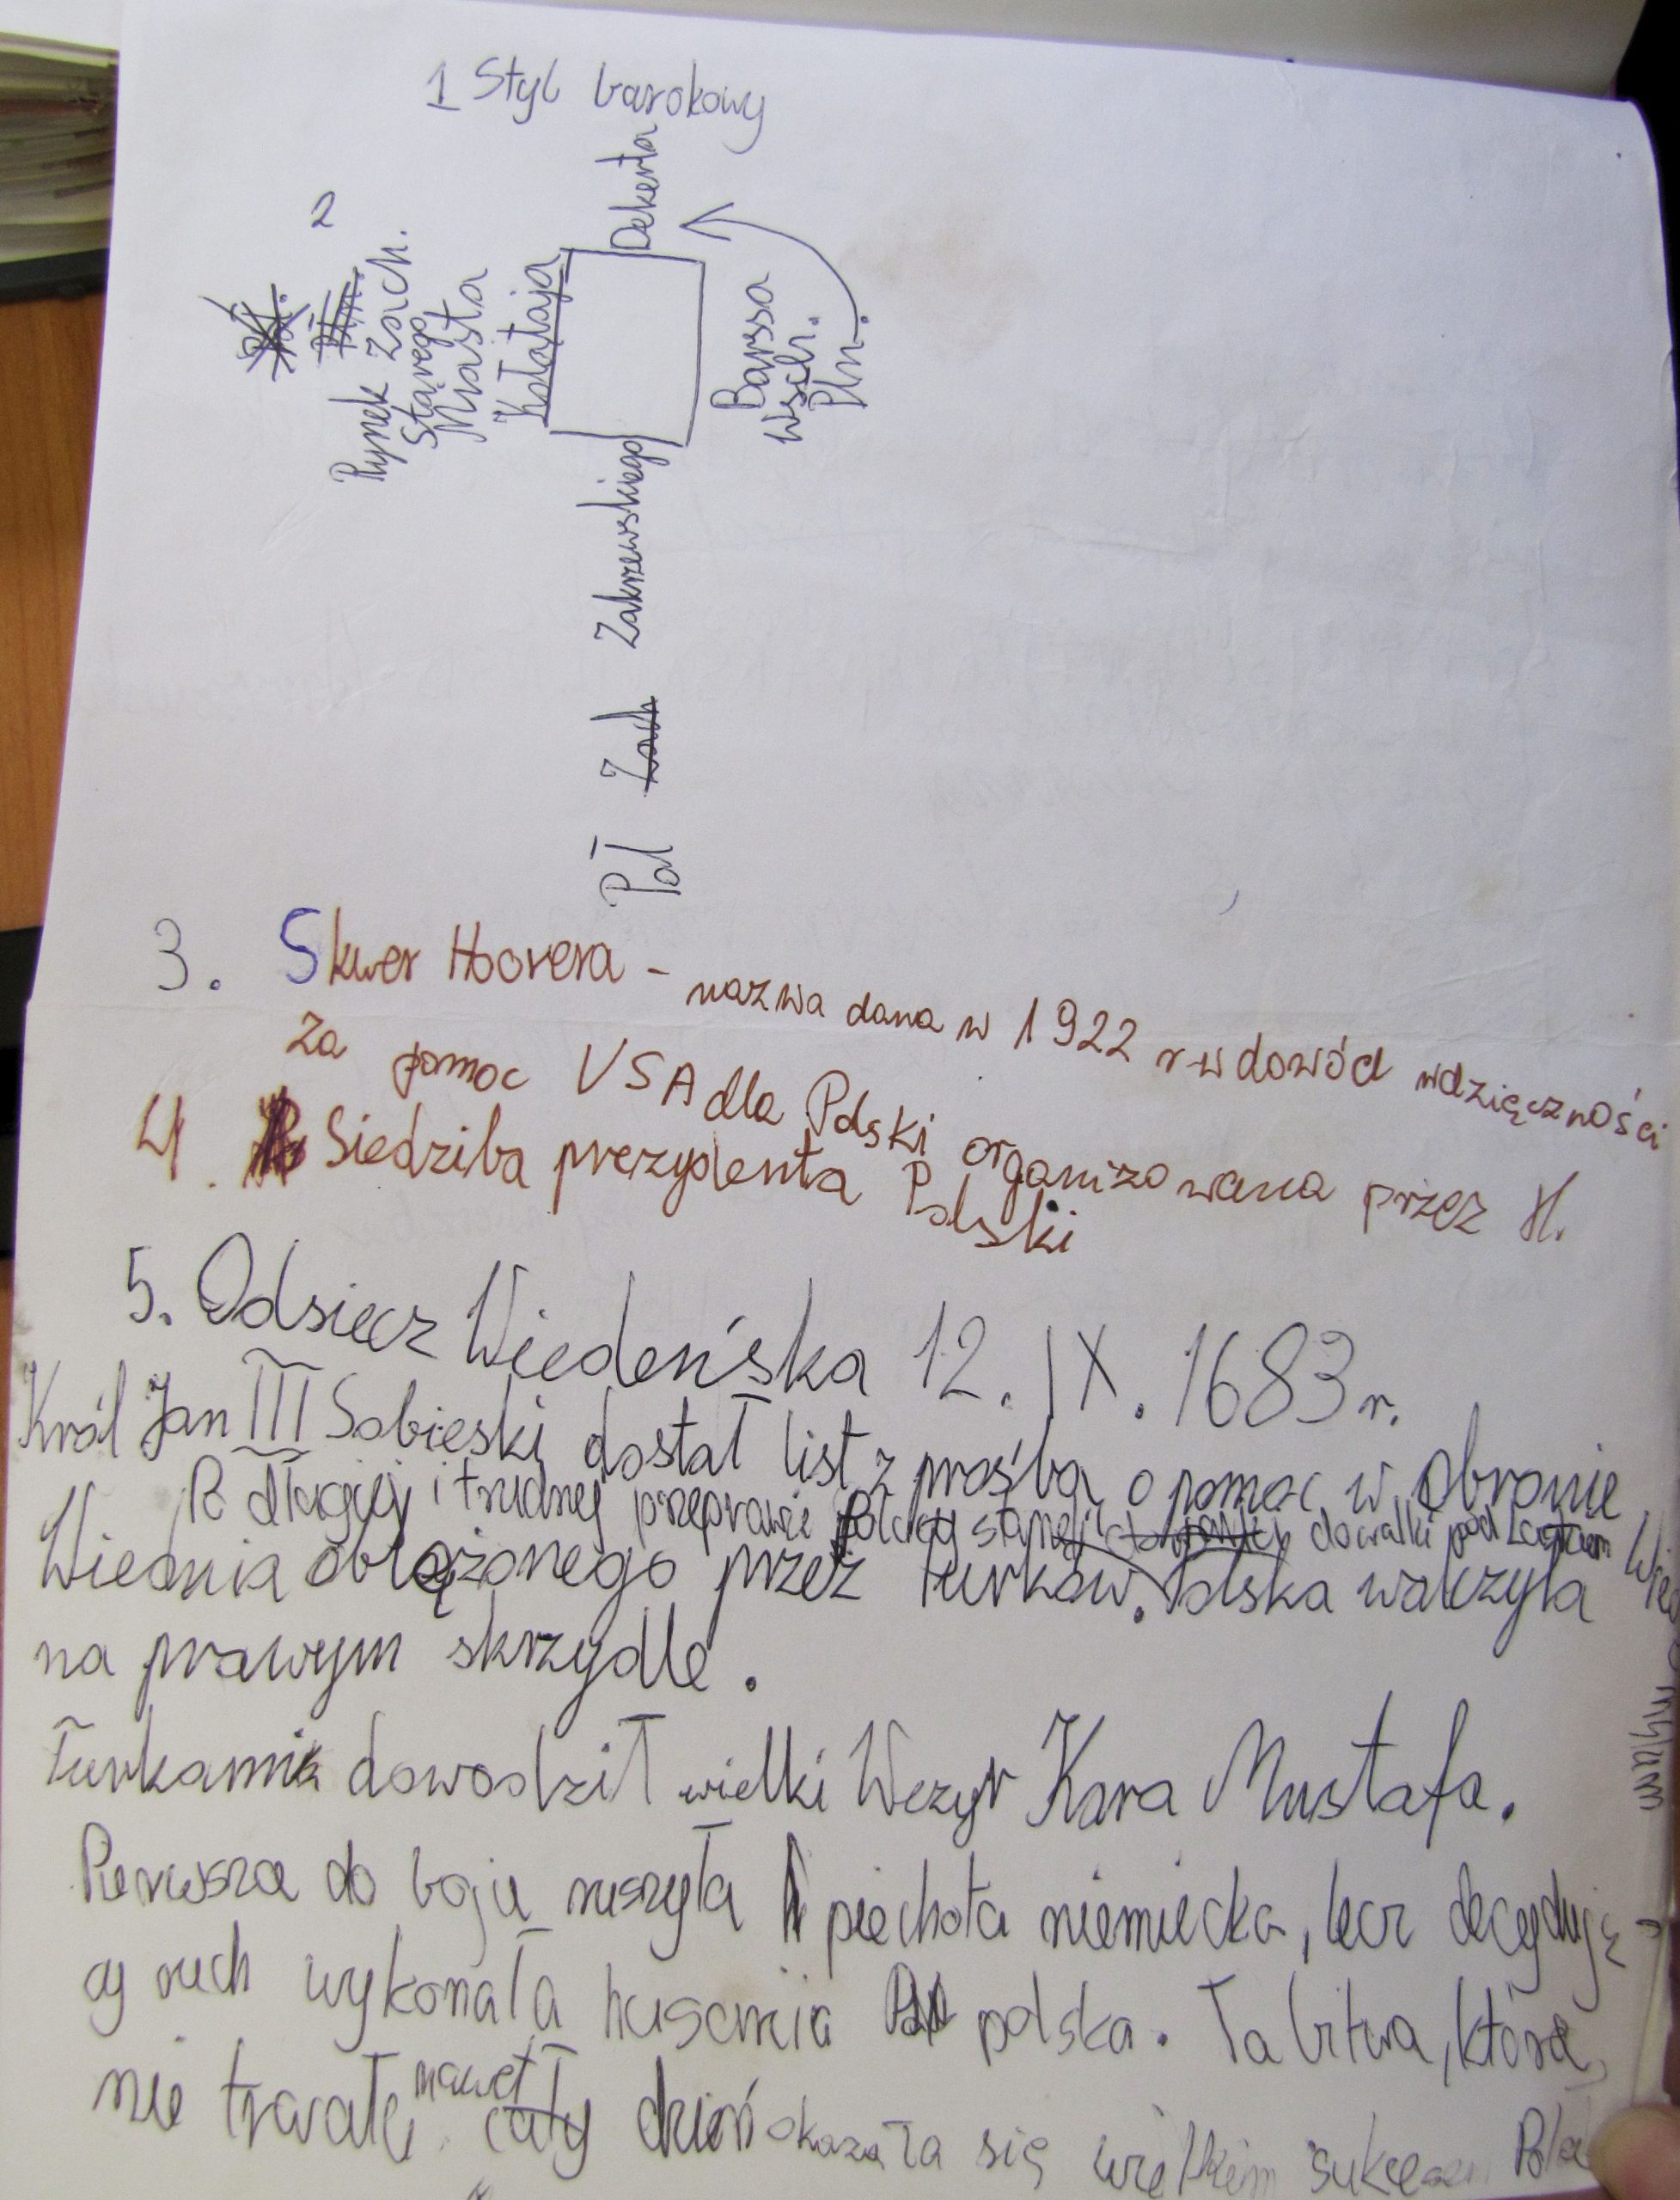 1 Styl barokowy
2
Rynek Zach.
Starego
Miasta
Kołątaja
Dekerta
Barssa
Wsch.
Płn.
Zakrzewskiego
Poł Zach
3. Skwer Hoovera - nazwa dana w 1922 r w dowód wdzięczności
za pomoc USA dla Polski organizowana przez H.
4. Siedziba prezydenta Polski
5. Odsiecz Wiedeńska 12. IX. 1683 r.
Król Jan III Sobieski dostał list z prośbą o pomoc w obronie
Po długiej i trudnej przeprawie Polacy stanęli do walki pod
Wiednia oblążonego przez turków. Polska walczyła
na prawym skrzydle.
Turkami dowodził wielki Wezyr Kara Mustafa.
Pierwsza do boju ruszyła piechota niemiecka, lecz decydują
cy ruch wykonała husaria polska. Ta bitwa, która
nie trwała nawet cały dzień okazała się wielkim sukcesem